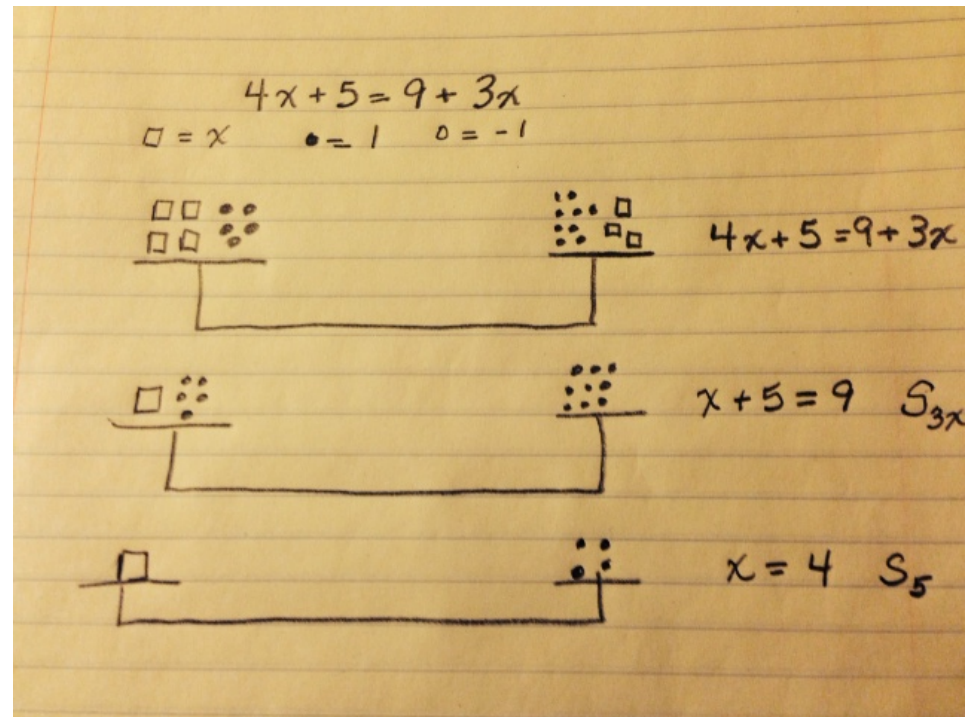 4x + 5 = 9 + 3x
□ = x   • = 1   o = -1
4x + 5 = 9 + 3x
x + 5 = 9   S₃ₓ
x = 4   S₅